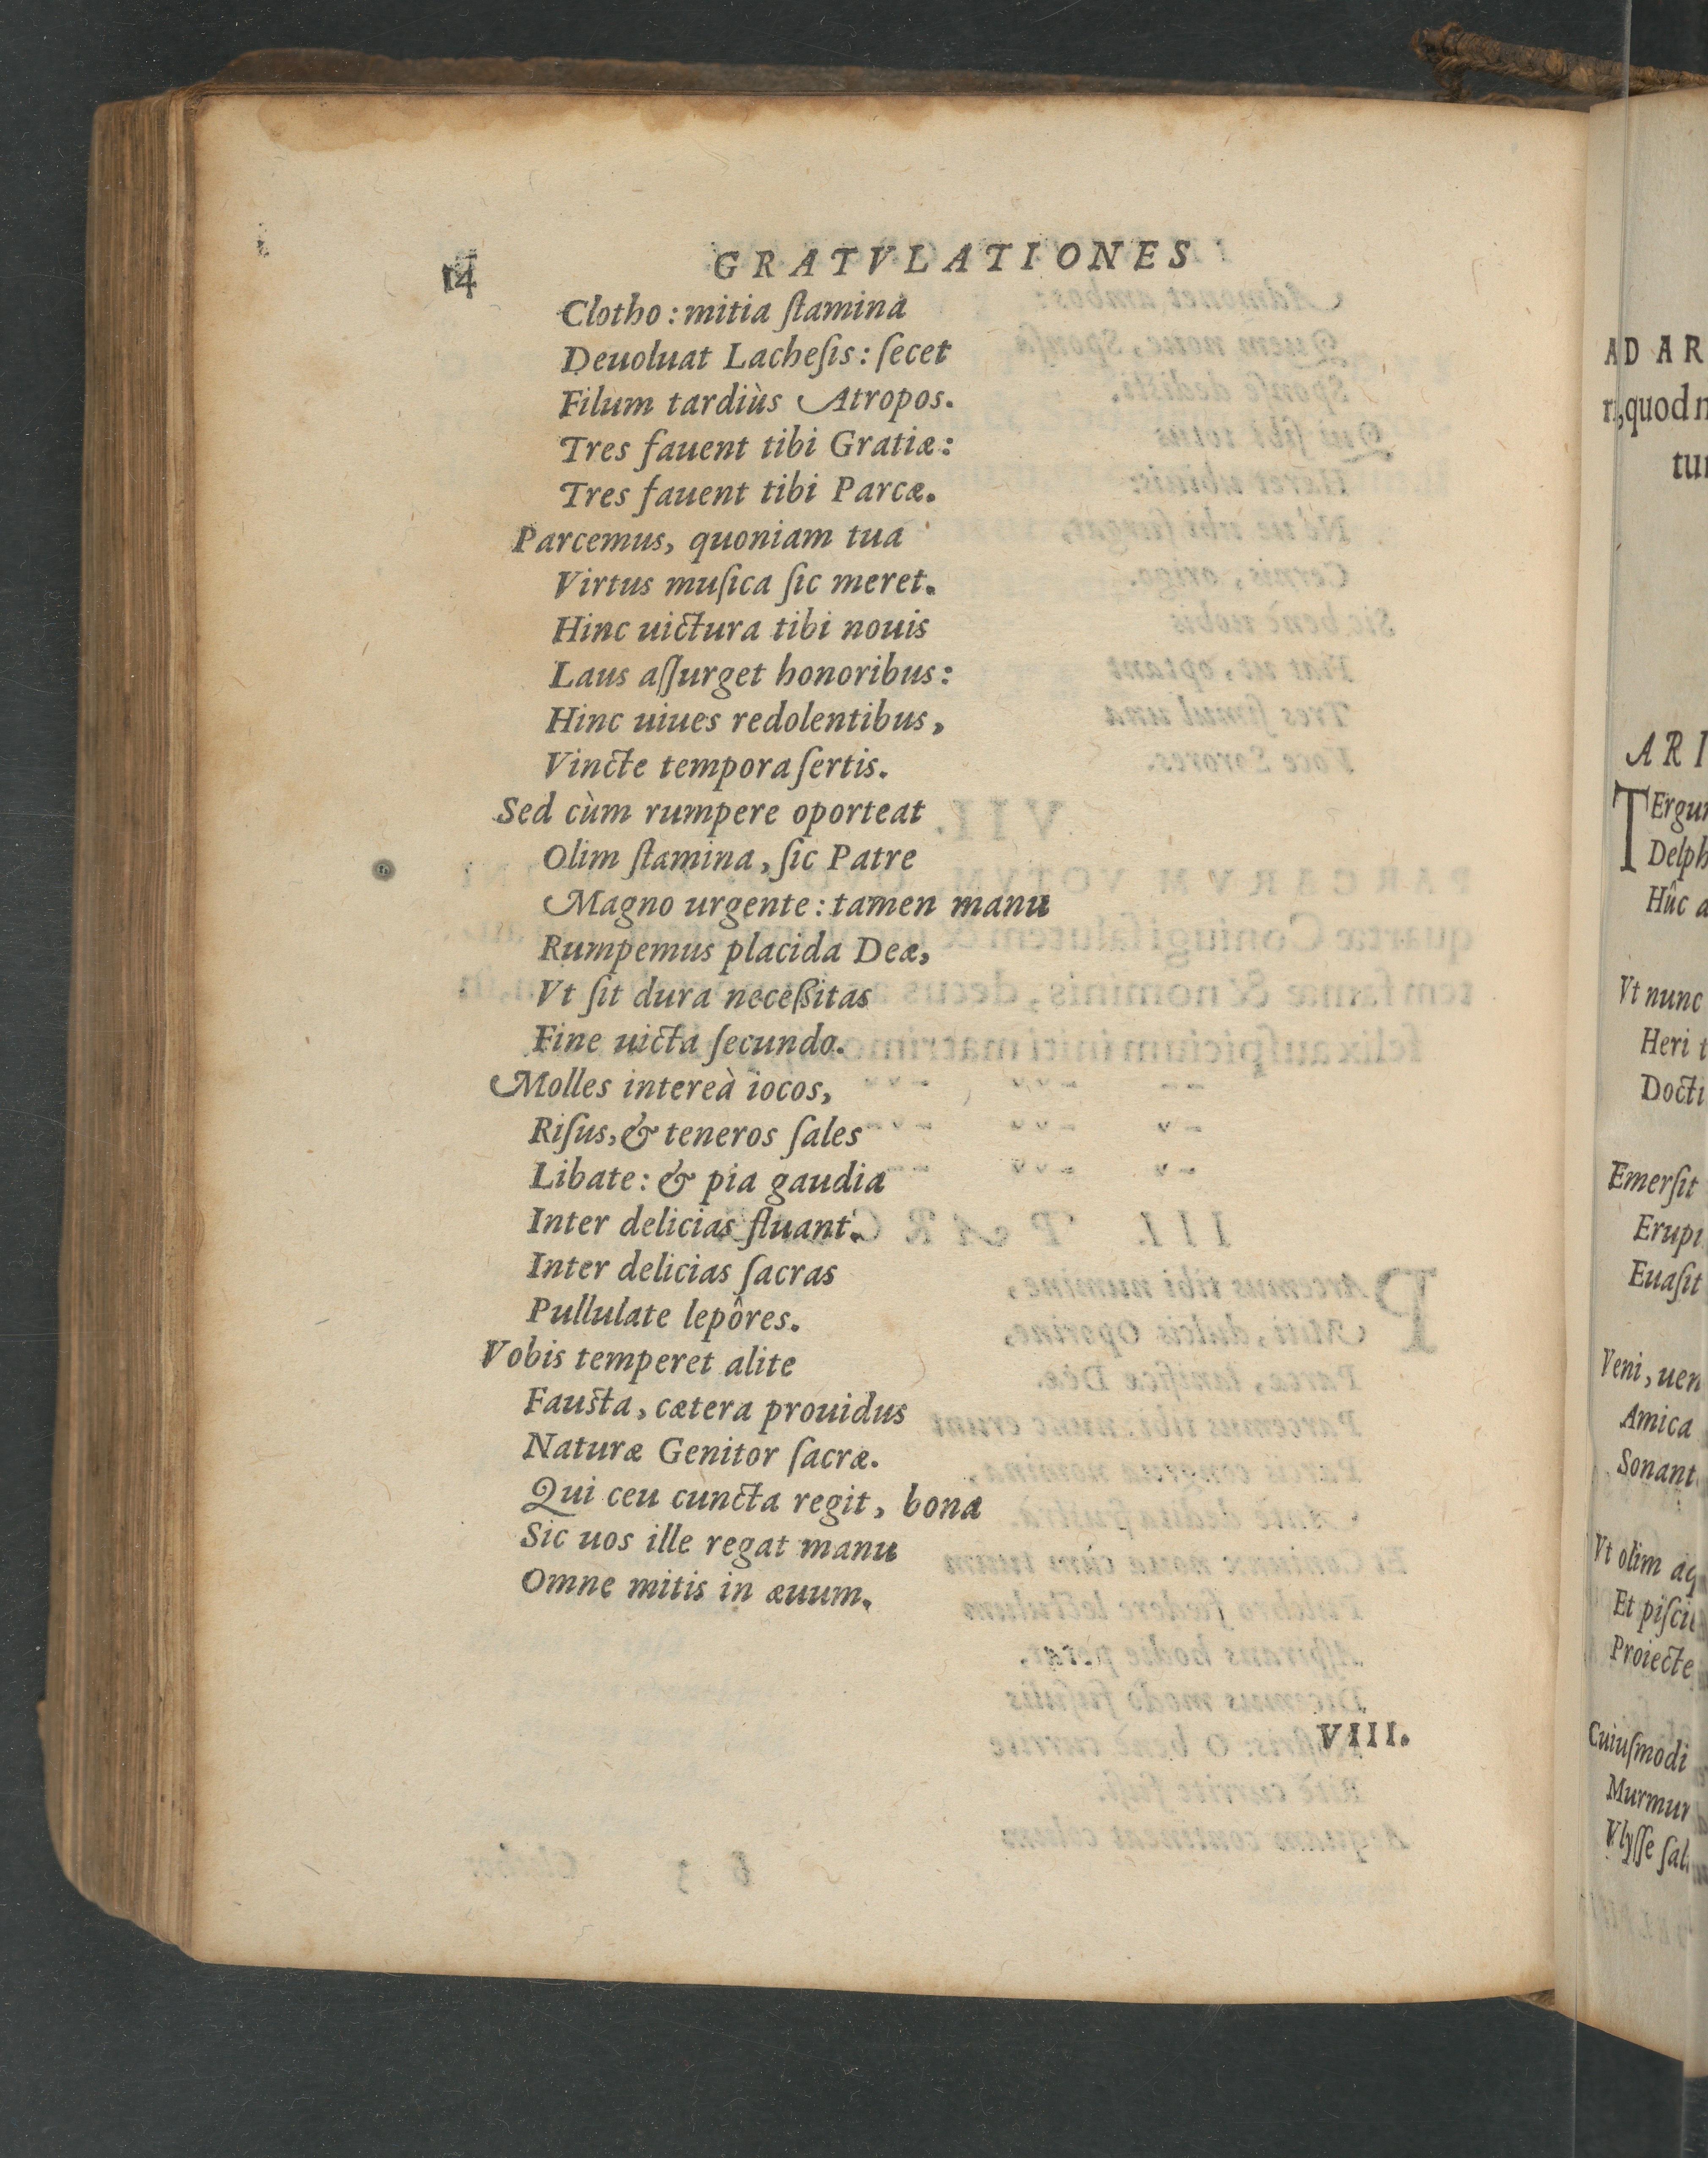 14 GRATVLATIONES
Clotho: mitia ſtamina
Deuoluat Lacheſis: ſecet
Filum tardiùs Atropos.
Tres fauent tibi Gratiæ:
Tres fauent tibi Parcæ.
Parcemus, quoniam tua
Virtus muſica ſic meret.
Hinc uictura tibi nouis
Laus aſſurget honoribus:
Hinc uiues redolentibus,
Vincte tempora ſertis.
Sed cùm rumpere oporteat
Olim ſtamina, ſic Patre
Magno urgente: tamen manu
Rumpemus placida Deæ,
Vt ſit dura neceßitas
Fine uicta ſecundo.
Molles intereà iocos,
Riſus, & teneros ſales
Libate: & pia gaudia
Inter delicias fluant.
Inter delicias ſacras
Pullulate lepôres.
Vobis temperet alite
Fausta, cætera prouidus
Naturæ Genitor ſacræ.
Qui ceu cuncta regit, bona
Sic uos ille regat manu
Omne mitis in æuum.
VIII.
AD AR
quod
ARI
TErgu
Delph
Hûc
Vt nunc
Heri
Docti
Emerſit
Erupi
Euaſit
Veni, uen
Amica
Sonant
Vt olim aq
Et piſci
Proiecte
Cuiuſmodi
Murmur
Vlyſſe ſal